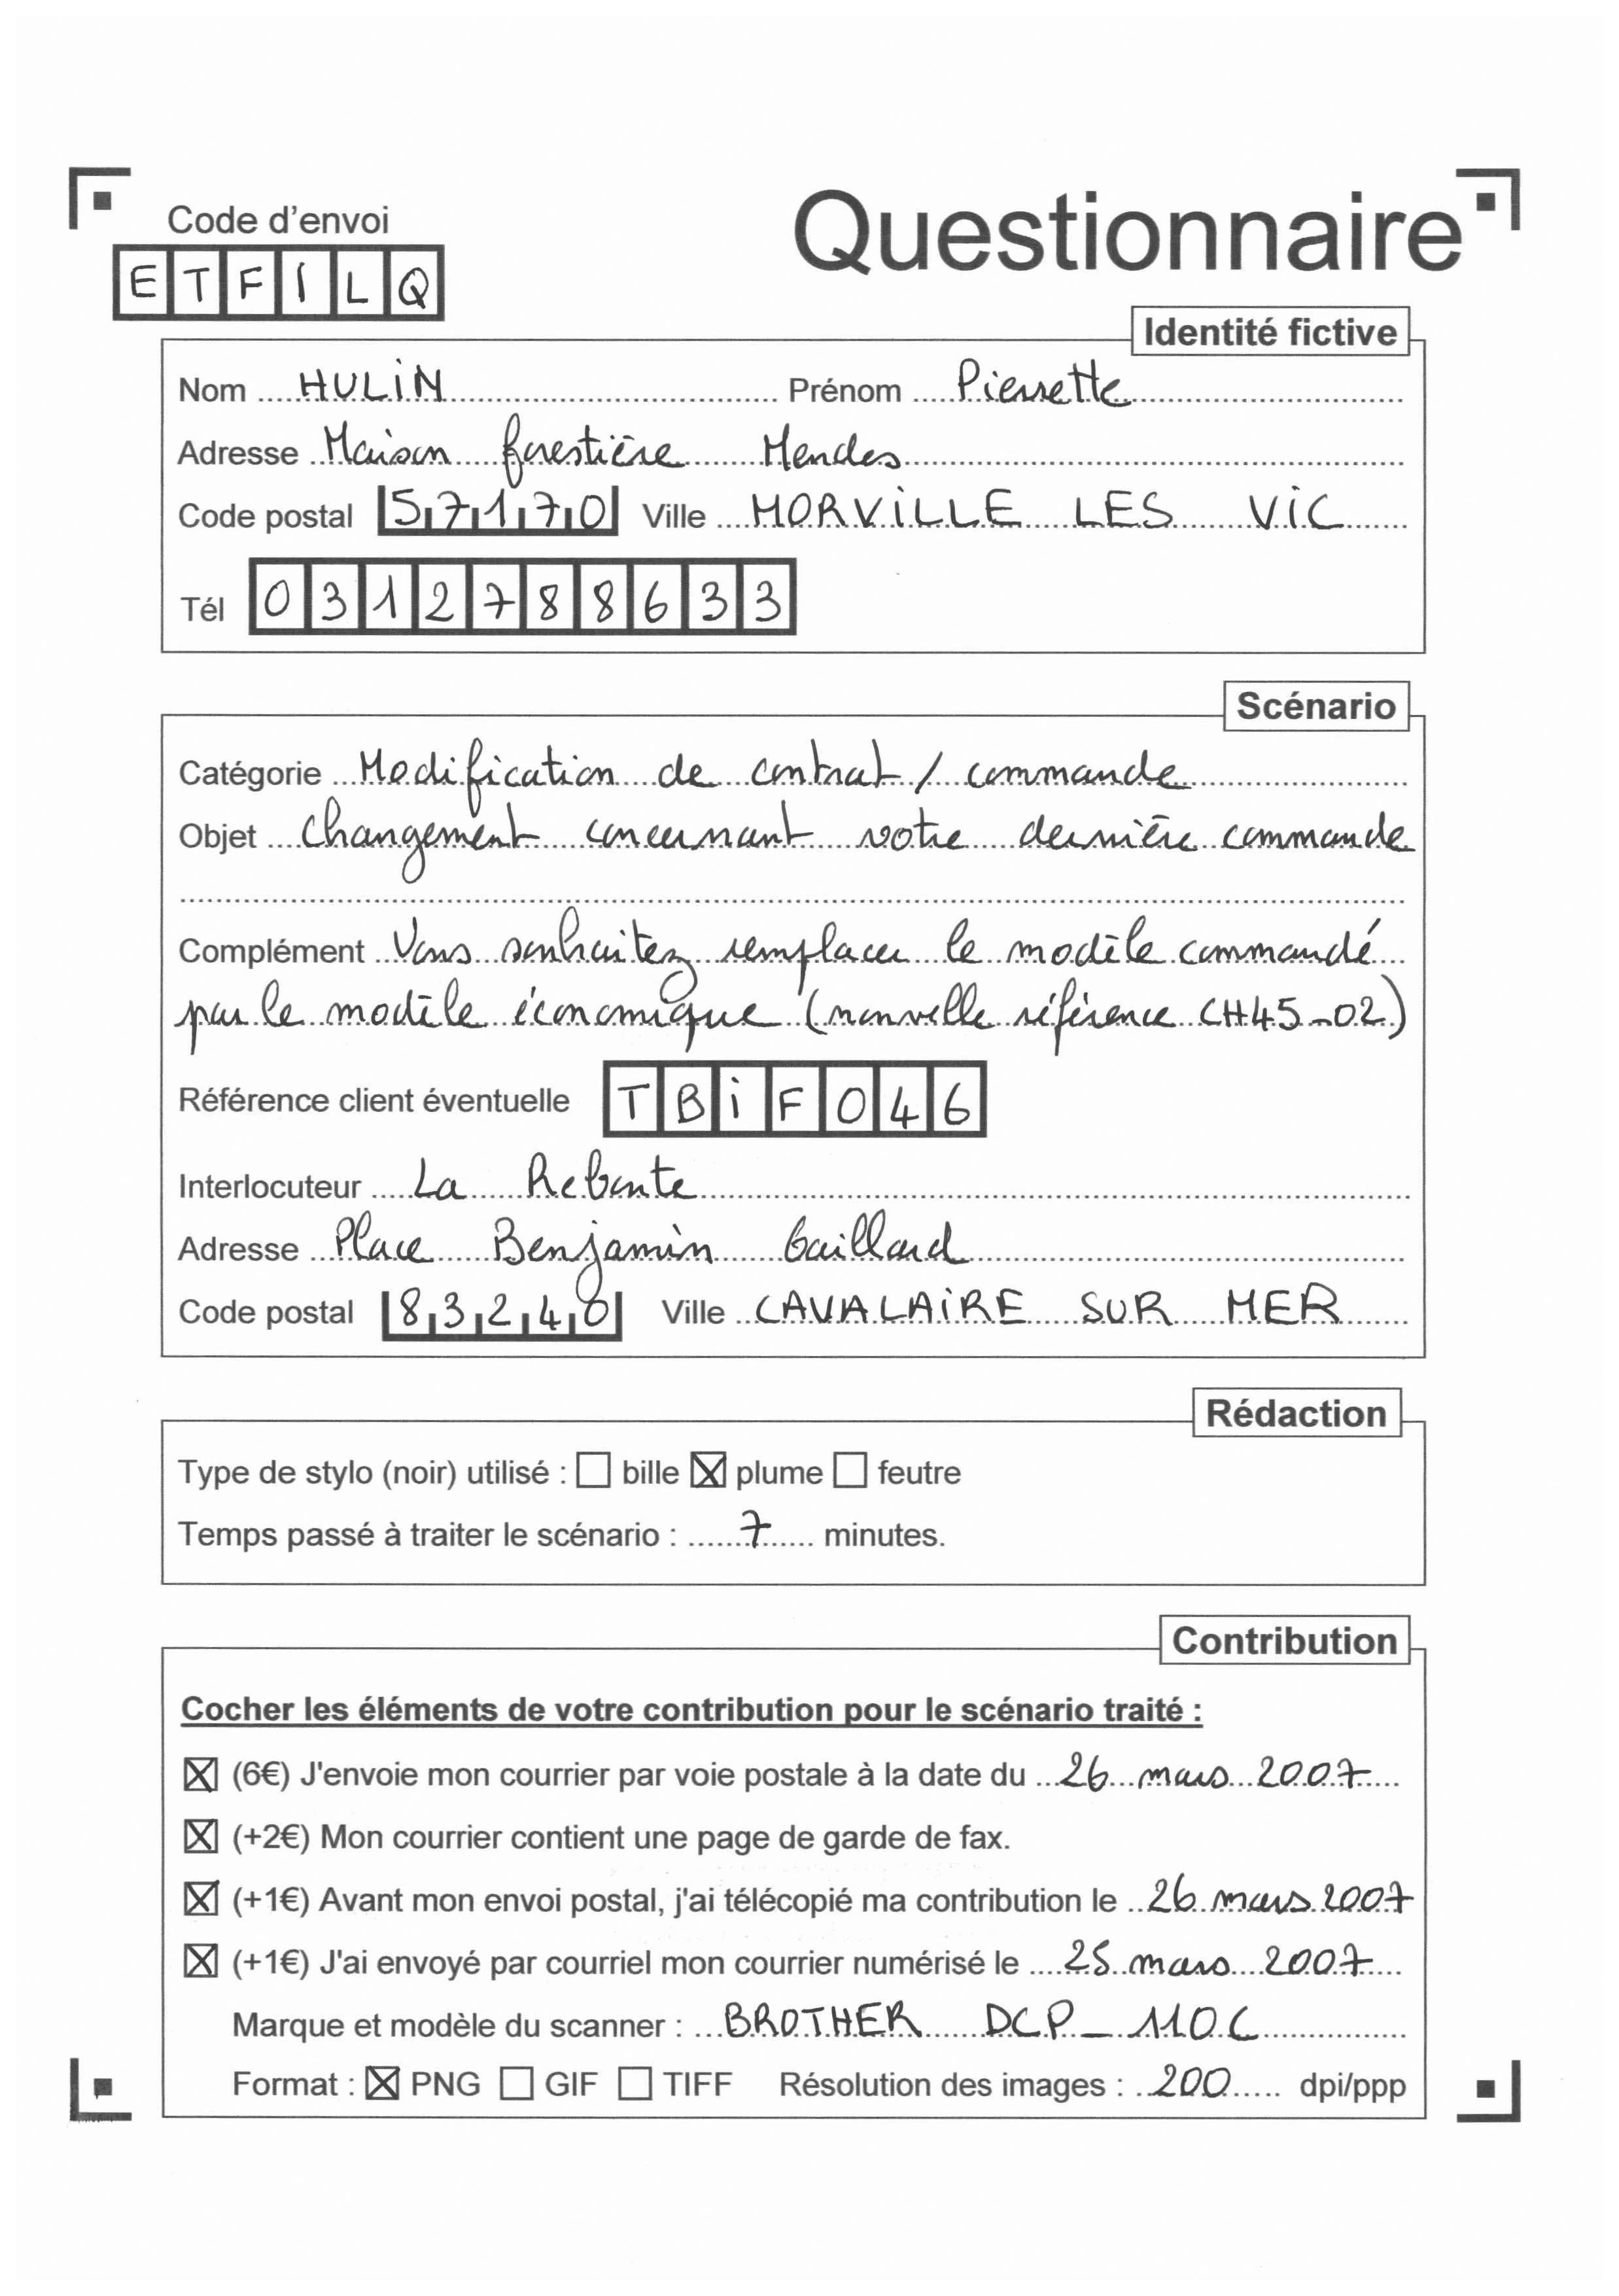 Code d'envoi
Questionnaire
ETFILQ
Identité fictive
Nom HULIN Prénom Pierrette
Adresse Maison forestière Mendes
Code postal 57170 Ville MORVILLE LES VIC
Tél 0312788633
Scénario
Catégorie Modification de contrat / commande
Objet Changement concernant votre dernière commande
Complément Vous souhaitez remplacer le modèle commandé
par le modèle économique (nouvelle référence CH45-02)
Référence client éventuelle TBIF046
Interlocuteur La Rebonte
Adresse Place Benjamin Gaillard
Code postal 83240 Ville CAVALAIRE SUR MER
Rédaction
Type de stylo (noir) utilisé : ☐ bille ☒ plume ☐ feutre
Temps passé à traiter le scénario : 7 minutes.
Contribution
Cocher les éléments de votre contribution pour le scénario traité :
☒ (6€) J'envoie mon courrier par voie postale à la date du 26 mars 2007
☒ (+2€) Mon courrier contient une page de garde de fax.
☒ (+1€) Avant mon envoi postal, j'ai télécopié ma contribution le 26 mars 2007
☒ (+1€) J'ai envoyé par courriel mon courrier numérisé le 25 mars 2007
Marque et modèle du scanner : BROTHER DCP-110C
Format : ☒ PNG ☐ GIF ☐ TIFF Résolution des images : 200 dpi/ppp